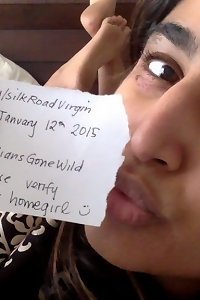 /SilkRoadVirgin
January 12th 2015
iansGoneWild
se verify
homegirl